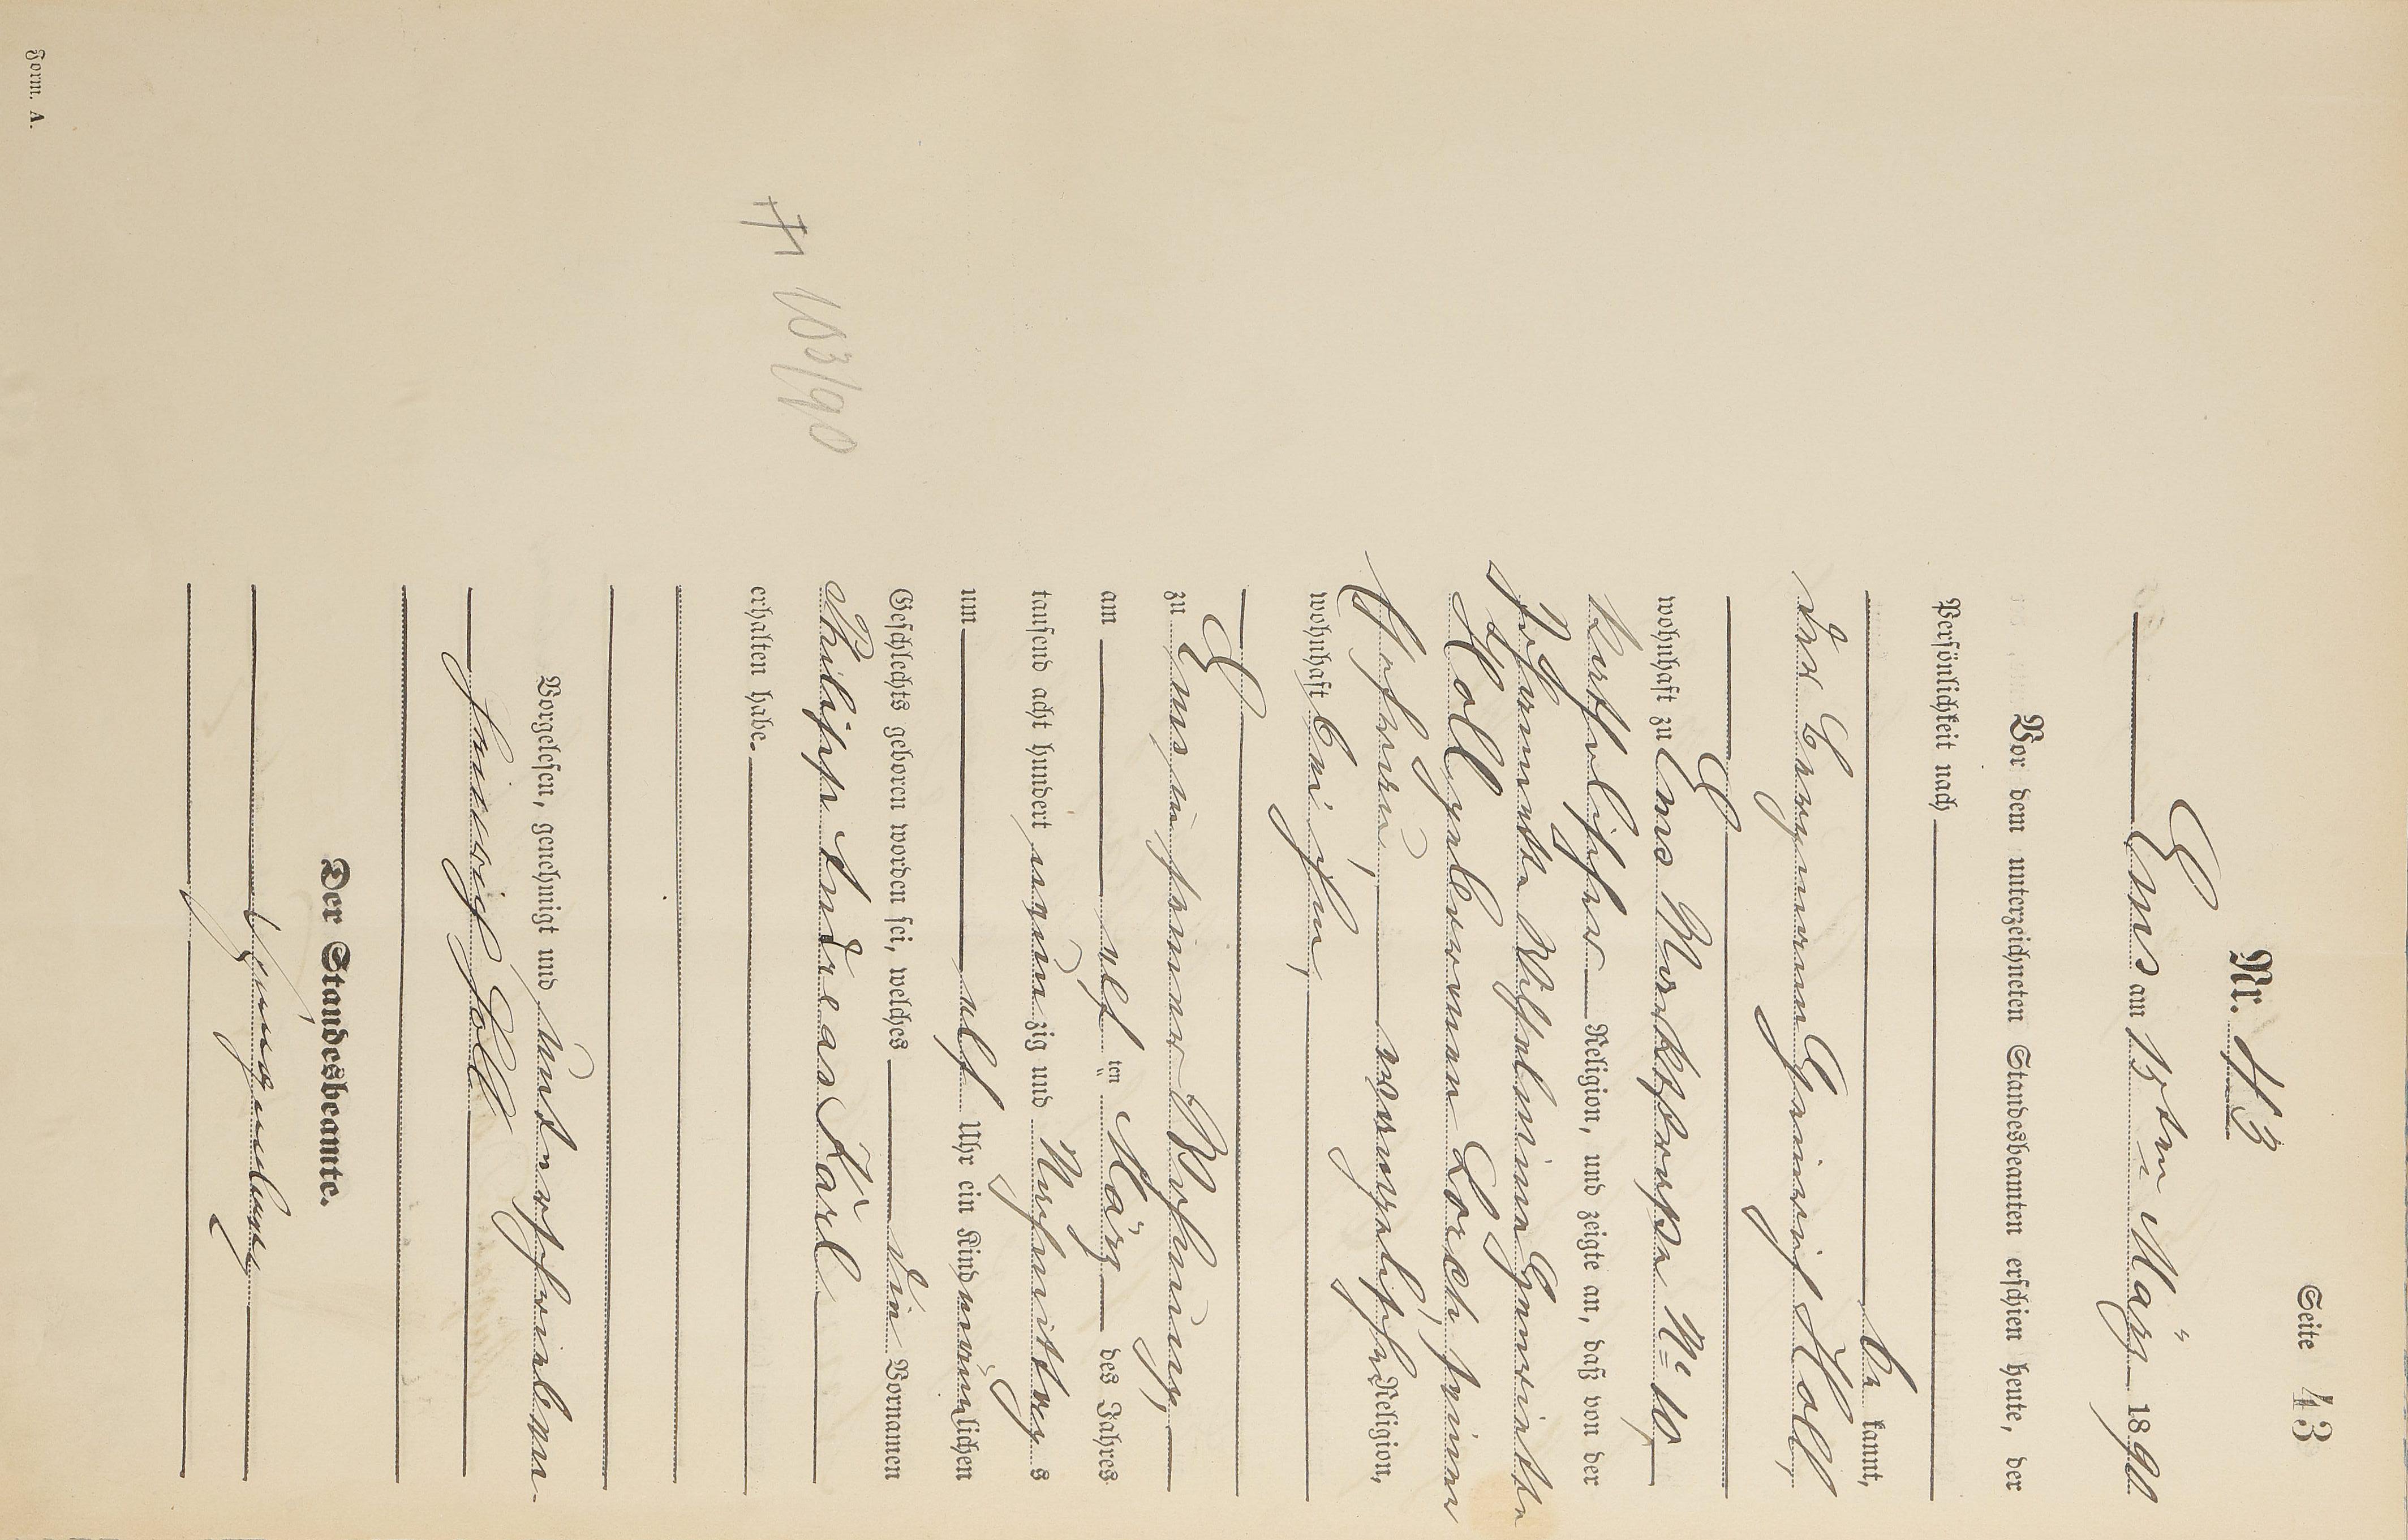 Seite 43
Nr. 43
Ems am 13ten März 1890
Vor dem unterzeichneten Standesbeamten erschien heute, der
Persönlichkeit nach
be kannt,
der Bergmann Heinrich Holl,
wohnhaft zu Ems Marktstraße No 10,
katholischer Religion, und zeigte an, daß von der
Johannette Wilhelmine Henriette
Holl geborenen Lorch, seiner
Ehefrau, evangelischer Religion,
wohnhaft bei ihm,
zu Ems in seiner Wohnung,
am elf ten März des Jahres
tausend acht hundert neun zig und Nachmittag s
um elf Uhr ein Kind männlichen
Geschlechts geboren worden sei, welches die Vornamen
Philipp Andreas Karl
erhalten habe.
Vorgelesen, genehmigt und unterschrieben
Heinrich Holl
Der Standesbeamte.
† 103/90
Form. A.